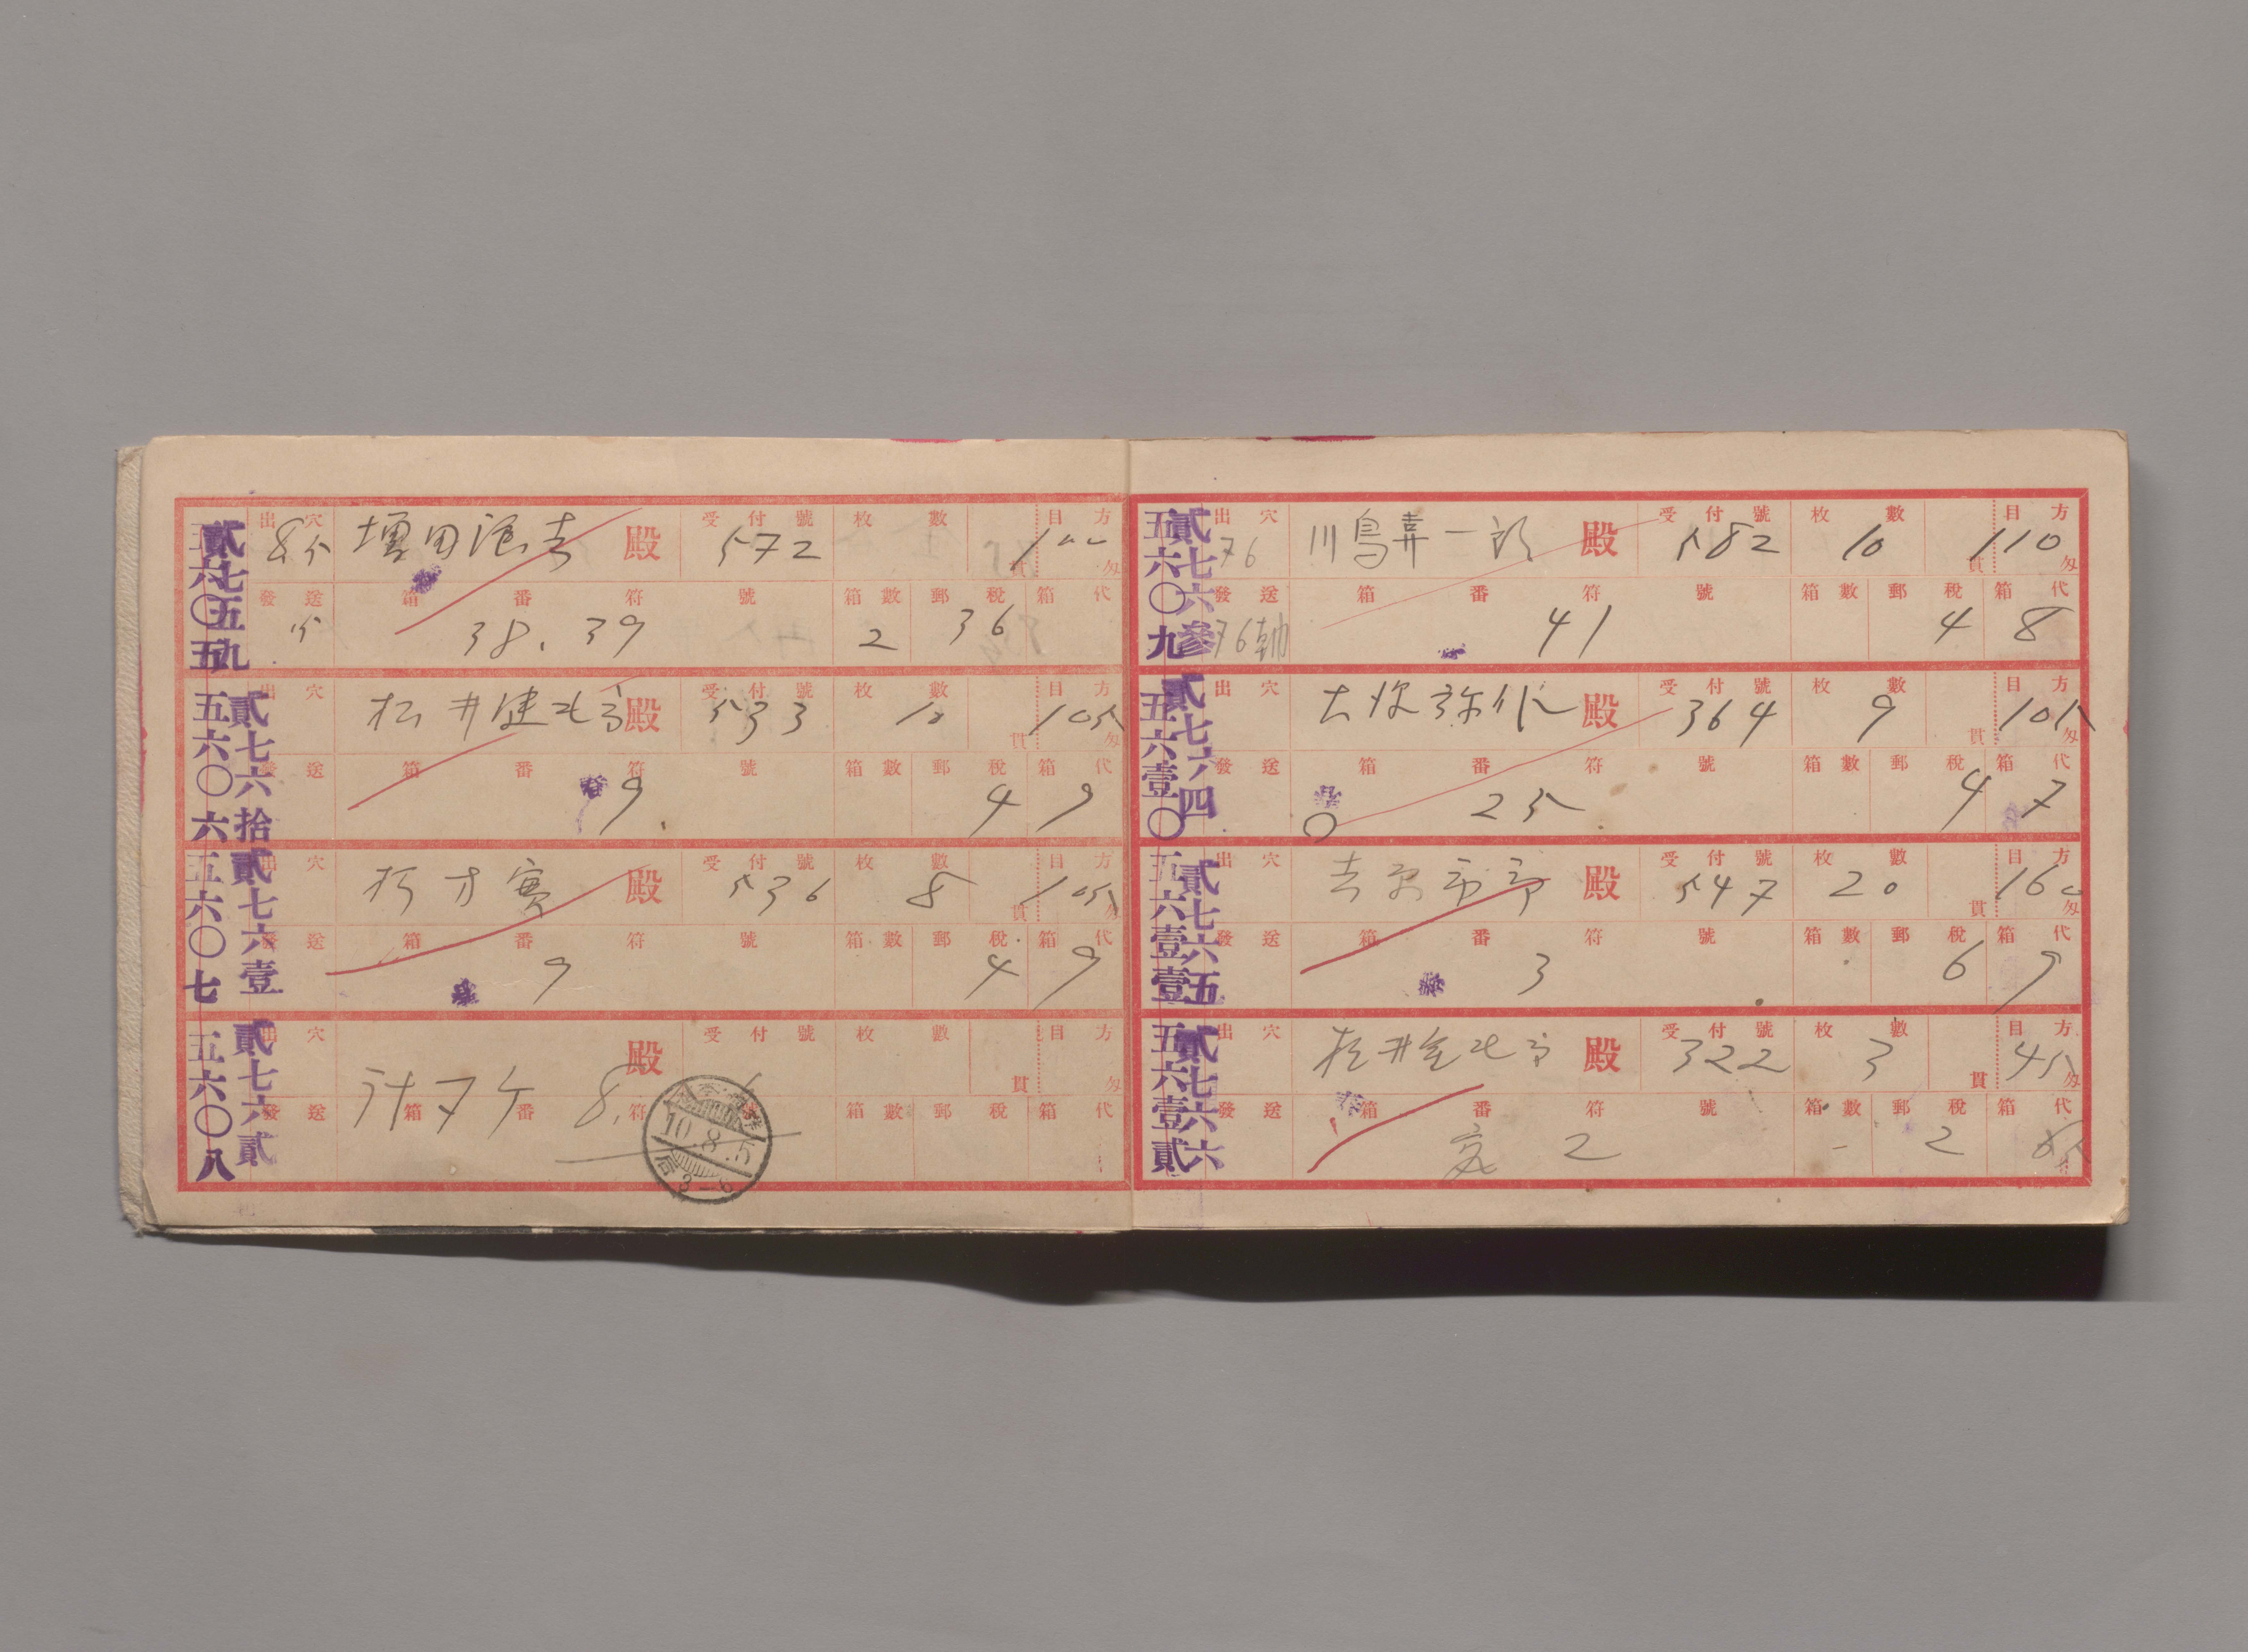 五六〇五 貳七五九
出穴 85 増田浪吉 殿 受付號 572 枚數 目方 100 貫 匁
發送 箱番符號 38.39 箱數 2 郵税 36 箱代
五六〇六 貳七六拾
出穴 松井健北斎 殿 受付號 533 枚數 10 目方 105 貫 匁
發送 箱番符號 9 箱數 郵税 4 箱代 9
五六〇七 貳七六壹
出穴 殿 受付號 536 枚數 8 目方 105 貫 匁
發送 箱番符號 9 箱數 郵税 4 箱代 9
五六〇八 貳七六貳
出穴 計7ケ 8. 殿 受付號 枚數 目方 貫 匁
發送 箱番符號 箱數 郵税 箱代
10.8.5
五六〇九 貳七六参
出穴 76 川鳥弄一郎 殿 受付號 582 枚數 10 目方 110 貫 匁
發送 76 箱番符號 41 箱數 郵税 4 箱代 8
五六壹〇 貳七六四
出穴 殿 受付號 364 枚數 9 目方 105 貫 匁
發送 箱番符號 25 箱數 郵税 4 箱代 7
五六壹壹 貳七六五
出穴 殿 受付號 547 枚數 20 目方 160 貫 匁
發送 箱番符號 3 箱數 郵税 6 箱代 9
五六壹貳 貳七六六
出穴 殿 受付號 322 枚數 3 目方 45 貫 匁
發送 箱番符號 2 箱數 郵税 2 箱代